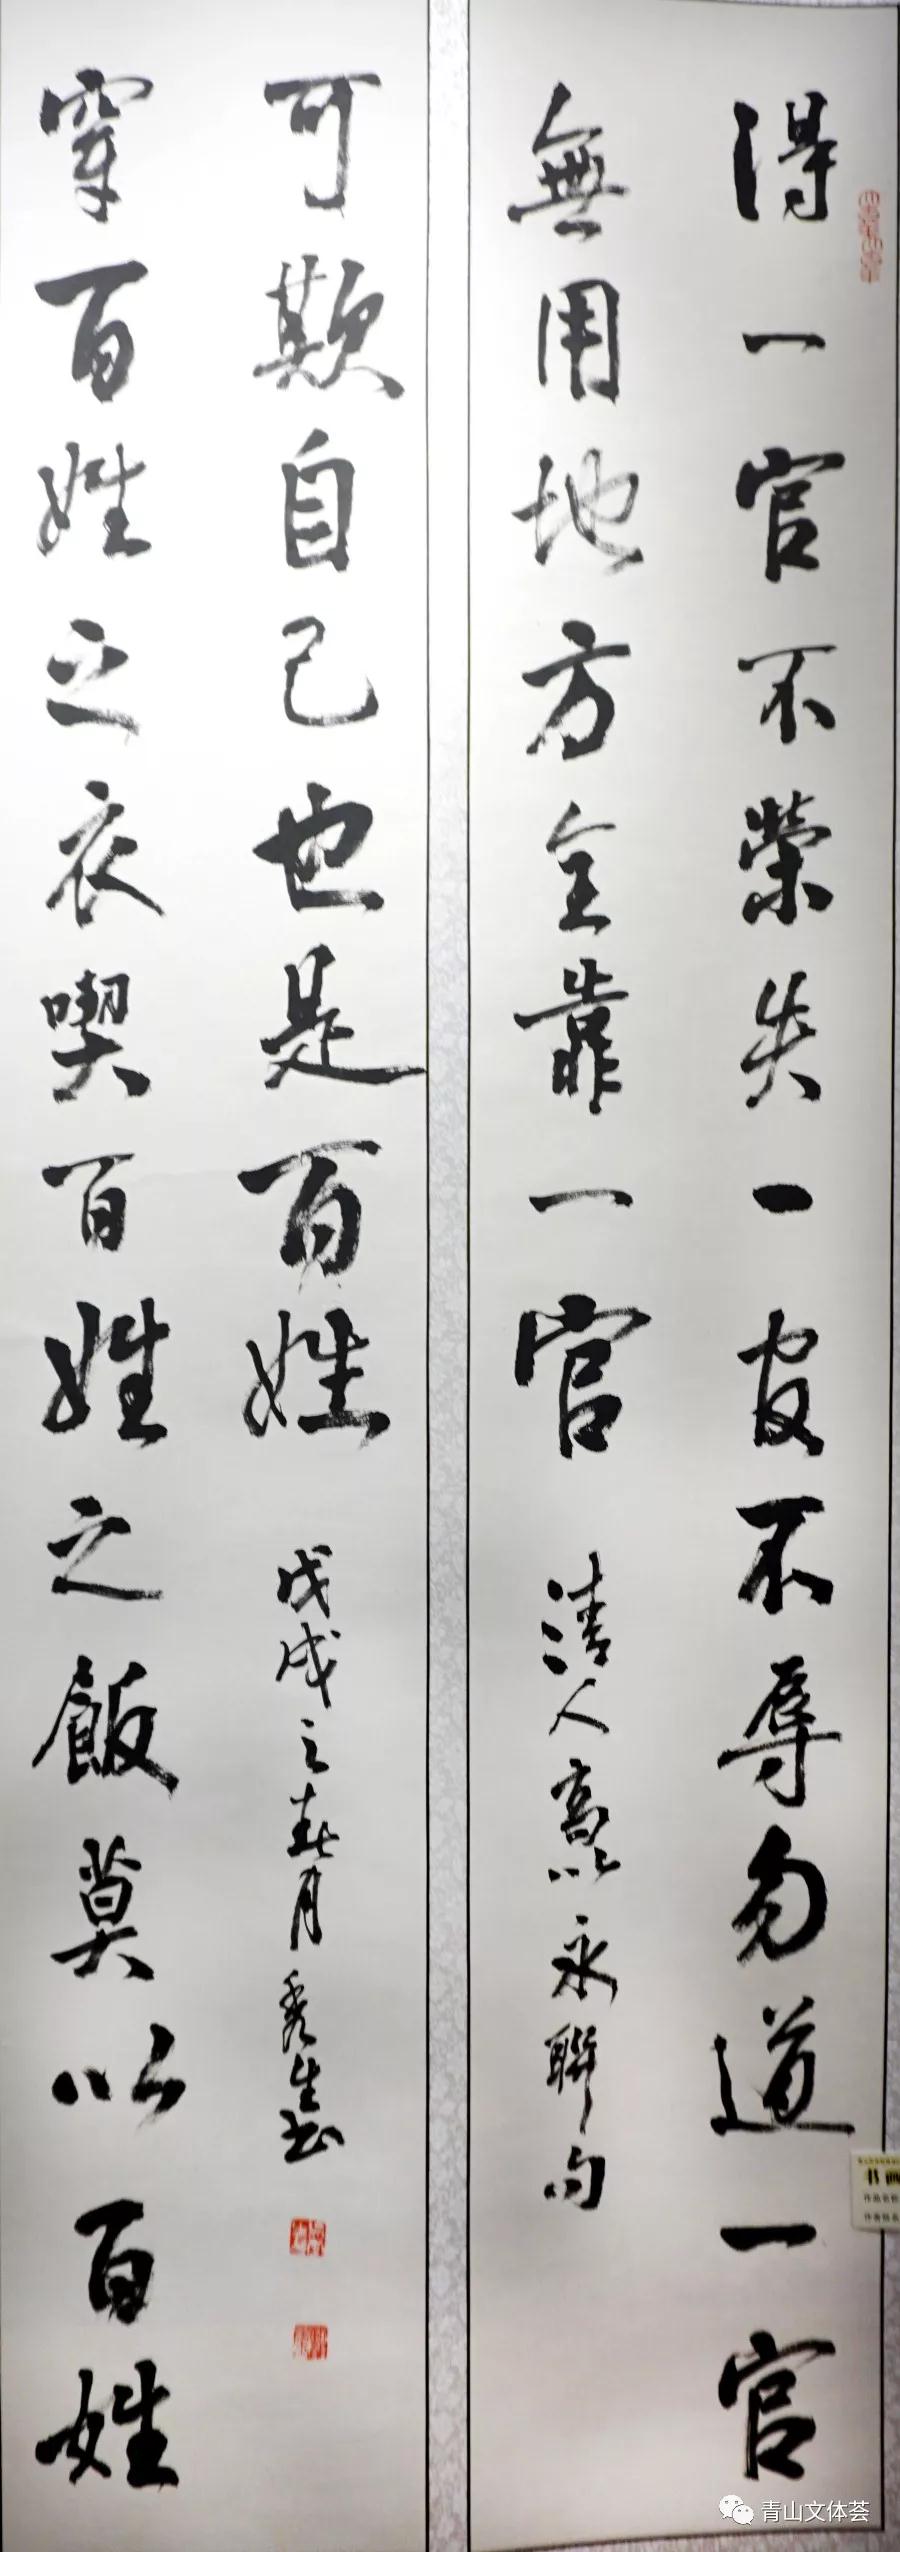 得一官不榮失一官不辱勿道一官
無用地方全靠一官
清人高以永聯句
穿百姓之衣喫百姓之飯莫以百姓
可欺自己也是百姓
戊戌之春月秀生书
书画
青山文体荟